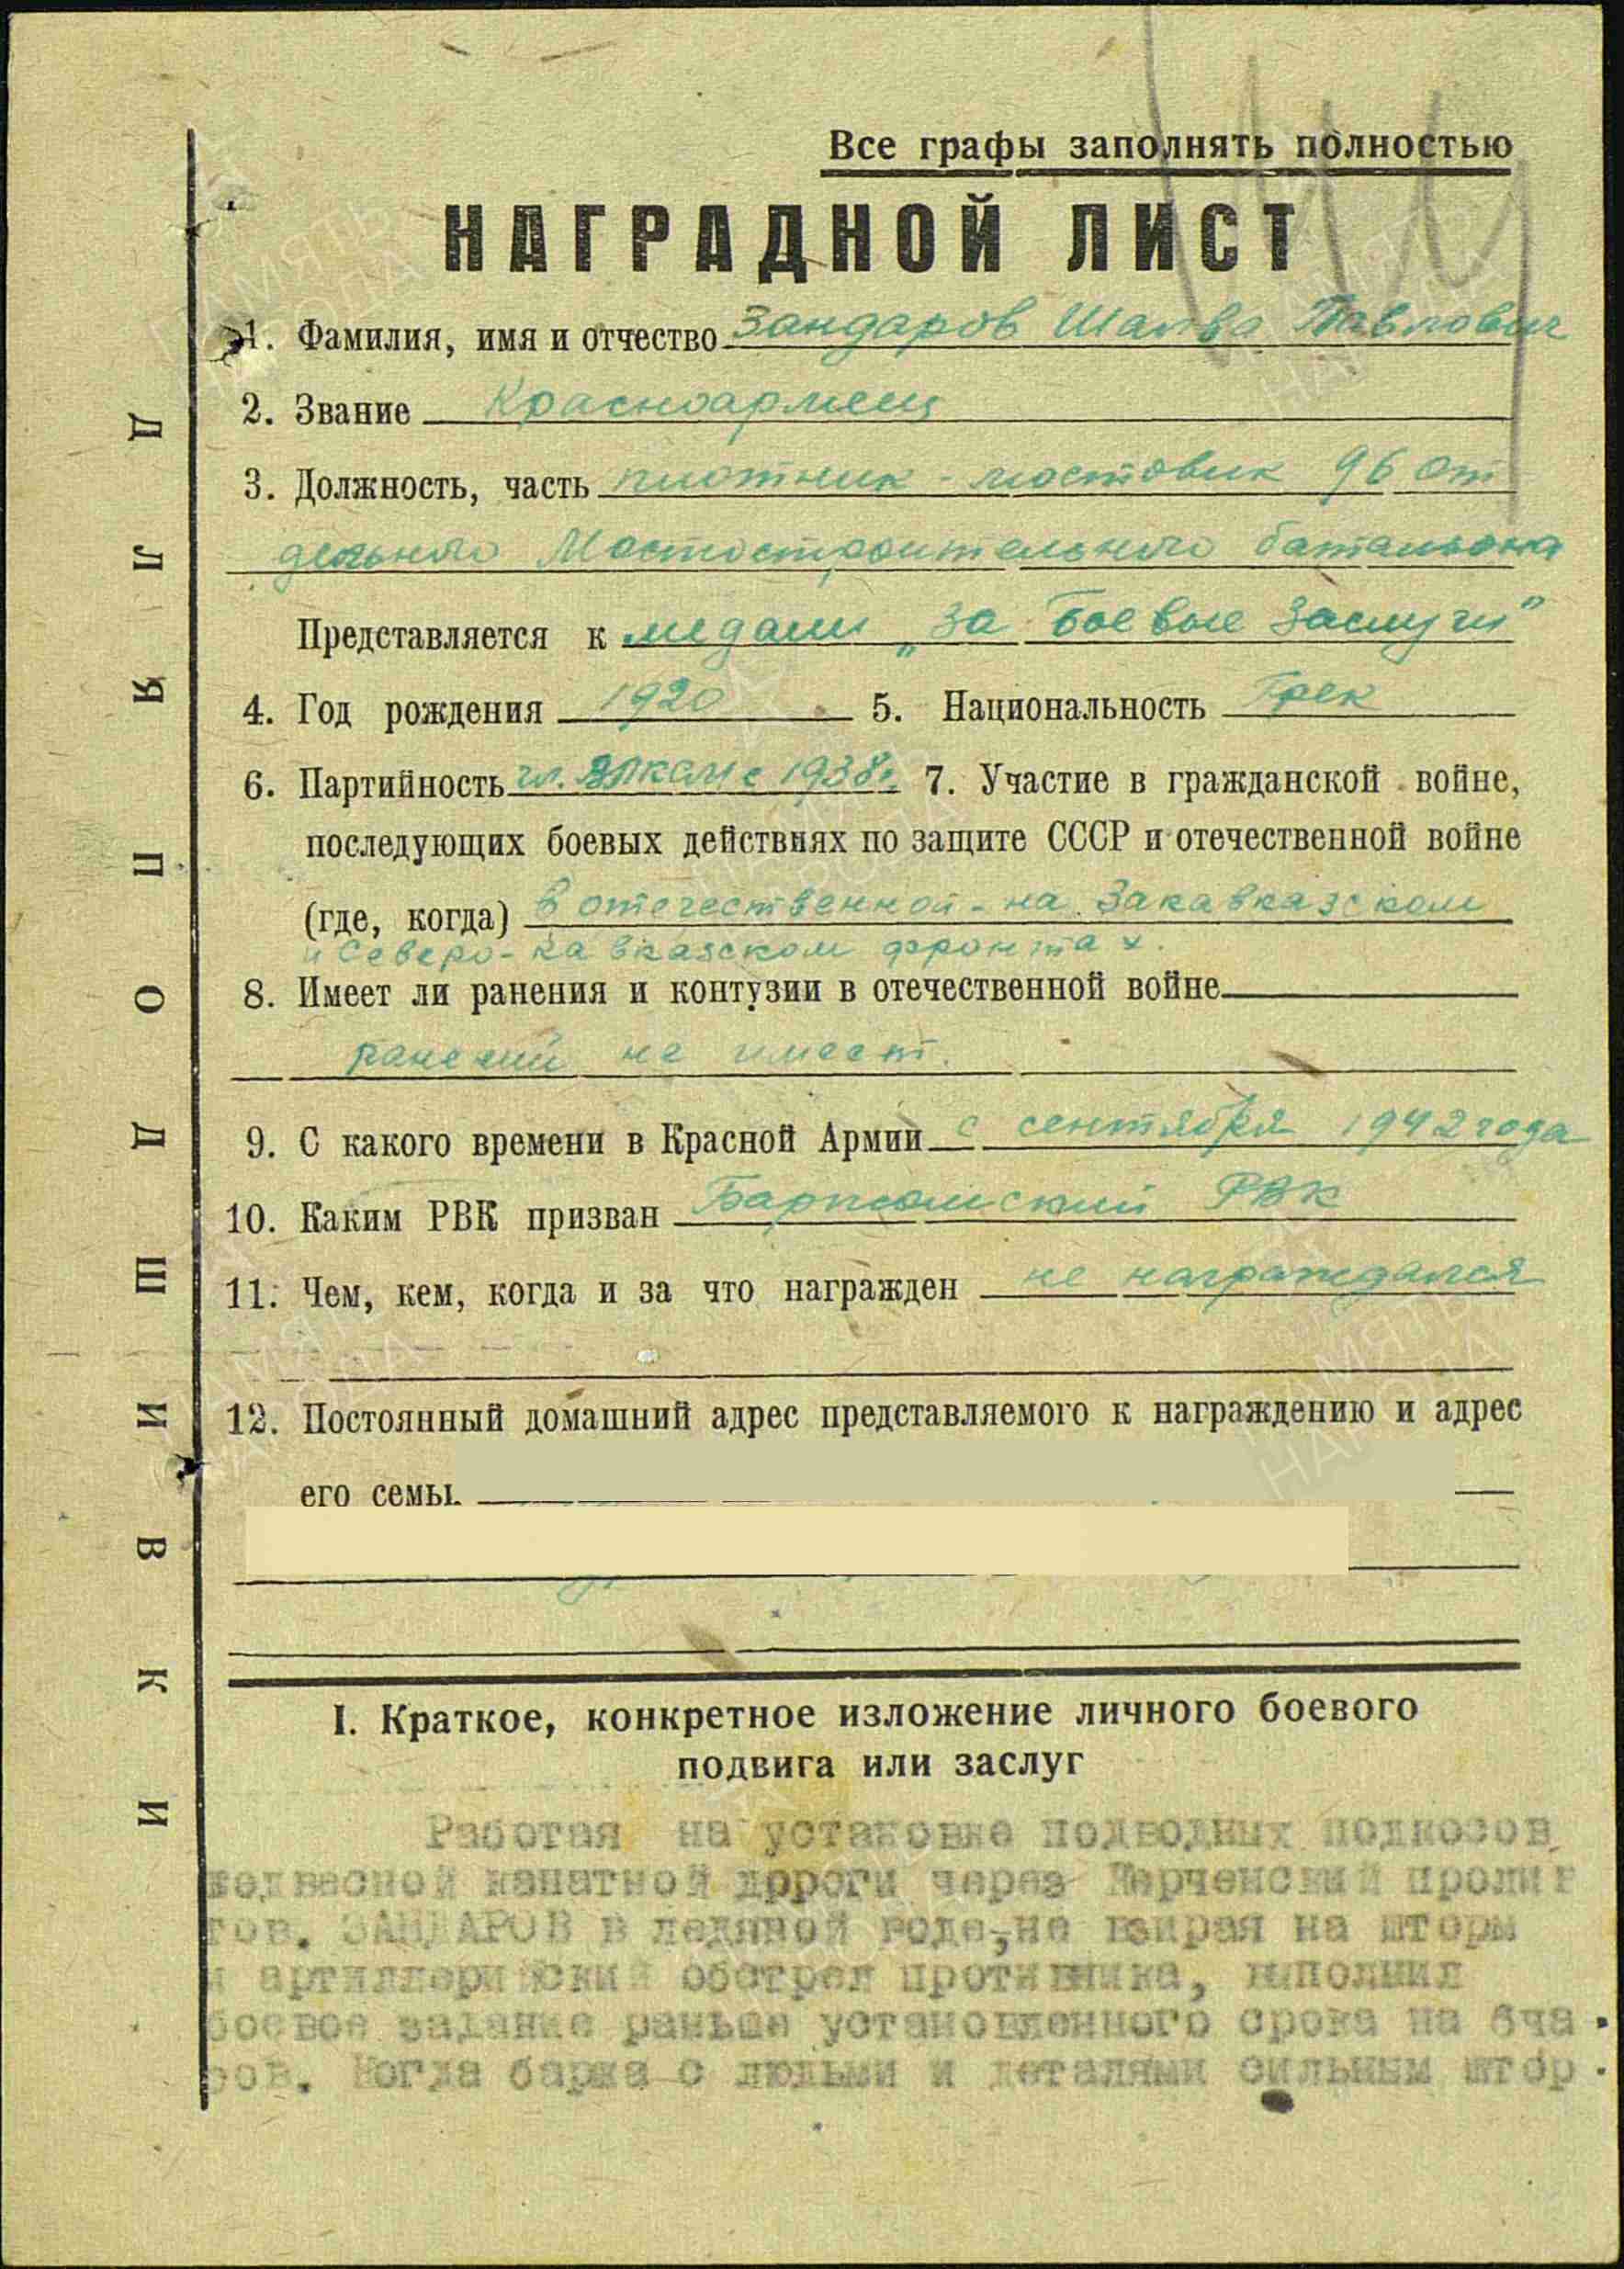 Все графы заполнять полностью
НАГРАДНОЙ ЛИСТ
1. Фамилия, имя и отчество Зандаров Шалва Павлович
2. Звание Красноармеец
3. Должность, часть плотник - мостовик 96 От
дельного Мостостроительного батальона
Представляется к медали „За Боевые Заслуги"
4. Год рождения 1920 5. Национальность Грек
6. Партийность чл. ВЛКСМ с 1938г. 7. Участие в гражданской войне,
последующих боевых действиях по защите СССР и отечественной войне
(где, когда) В отечественной - на Закавказском
и Северо-Кавказском фронтах.
8. Имеет ли ранения и контузии в отечественной войне
ранений не имеет.
9. С какого времени в Красной Армии с сентября 1942 года
10. Каким РВК призван РВК
11. Чем, кем, когда и за что награжден не награждался
12. Постоянный домашний адрес представляемого к награждению и адрес
его семьи
I. Краткое, конкретное изложение личного боевого
подвига или заслуг
Работая на установке подводных подкосов
подвесной канатной дороги через Керченский пролив
тов. ЗАНДАРОВ в ледяной воде, не взирая на шторм
и артиллерийский обстрел противника, выполнил
боевое задание раньше установленного срока на 6 ча
сов. Когда баржа с людьми и деталями сильным штор
ДЛЯ ПОДШИВКИ
ПАМЯТЬ
НАРОДА